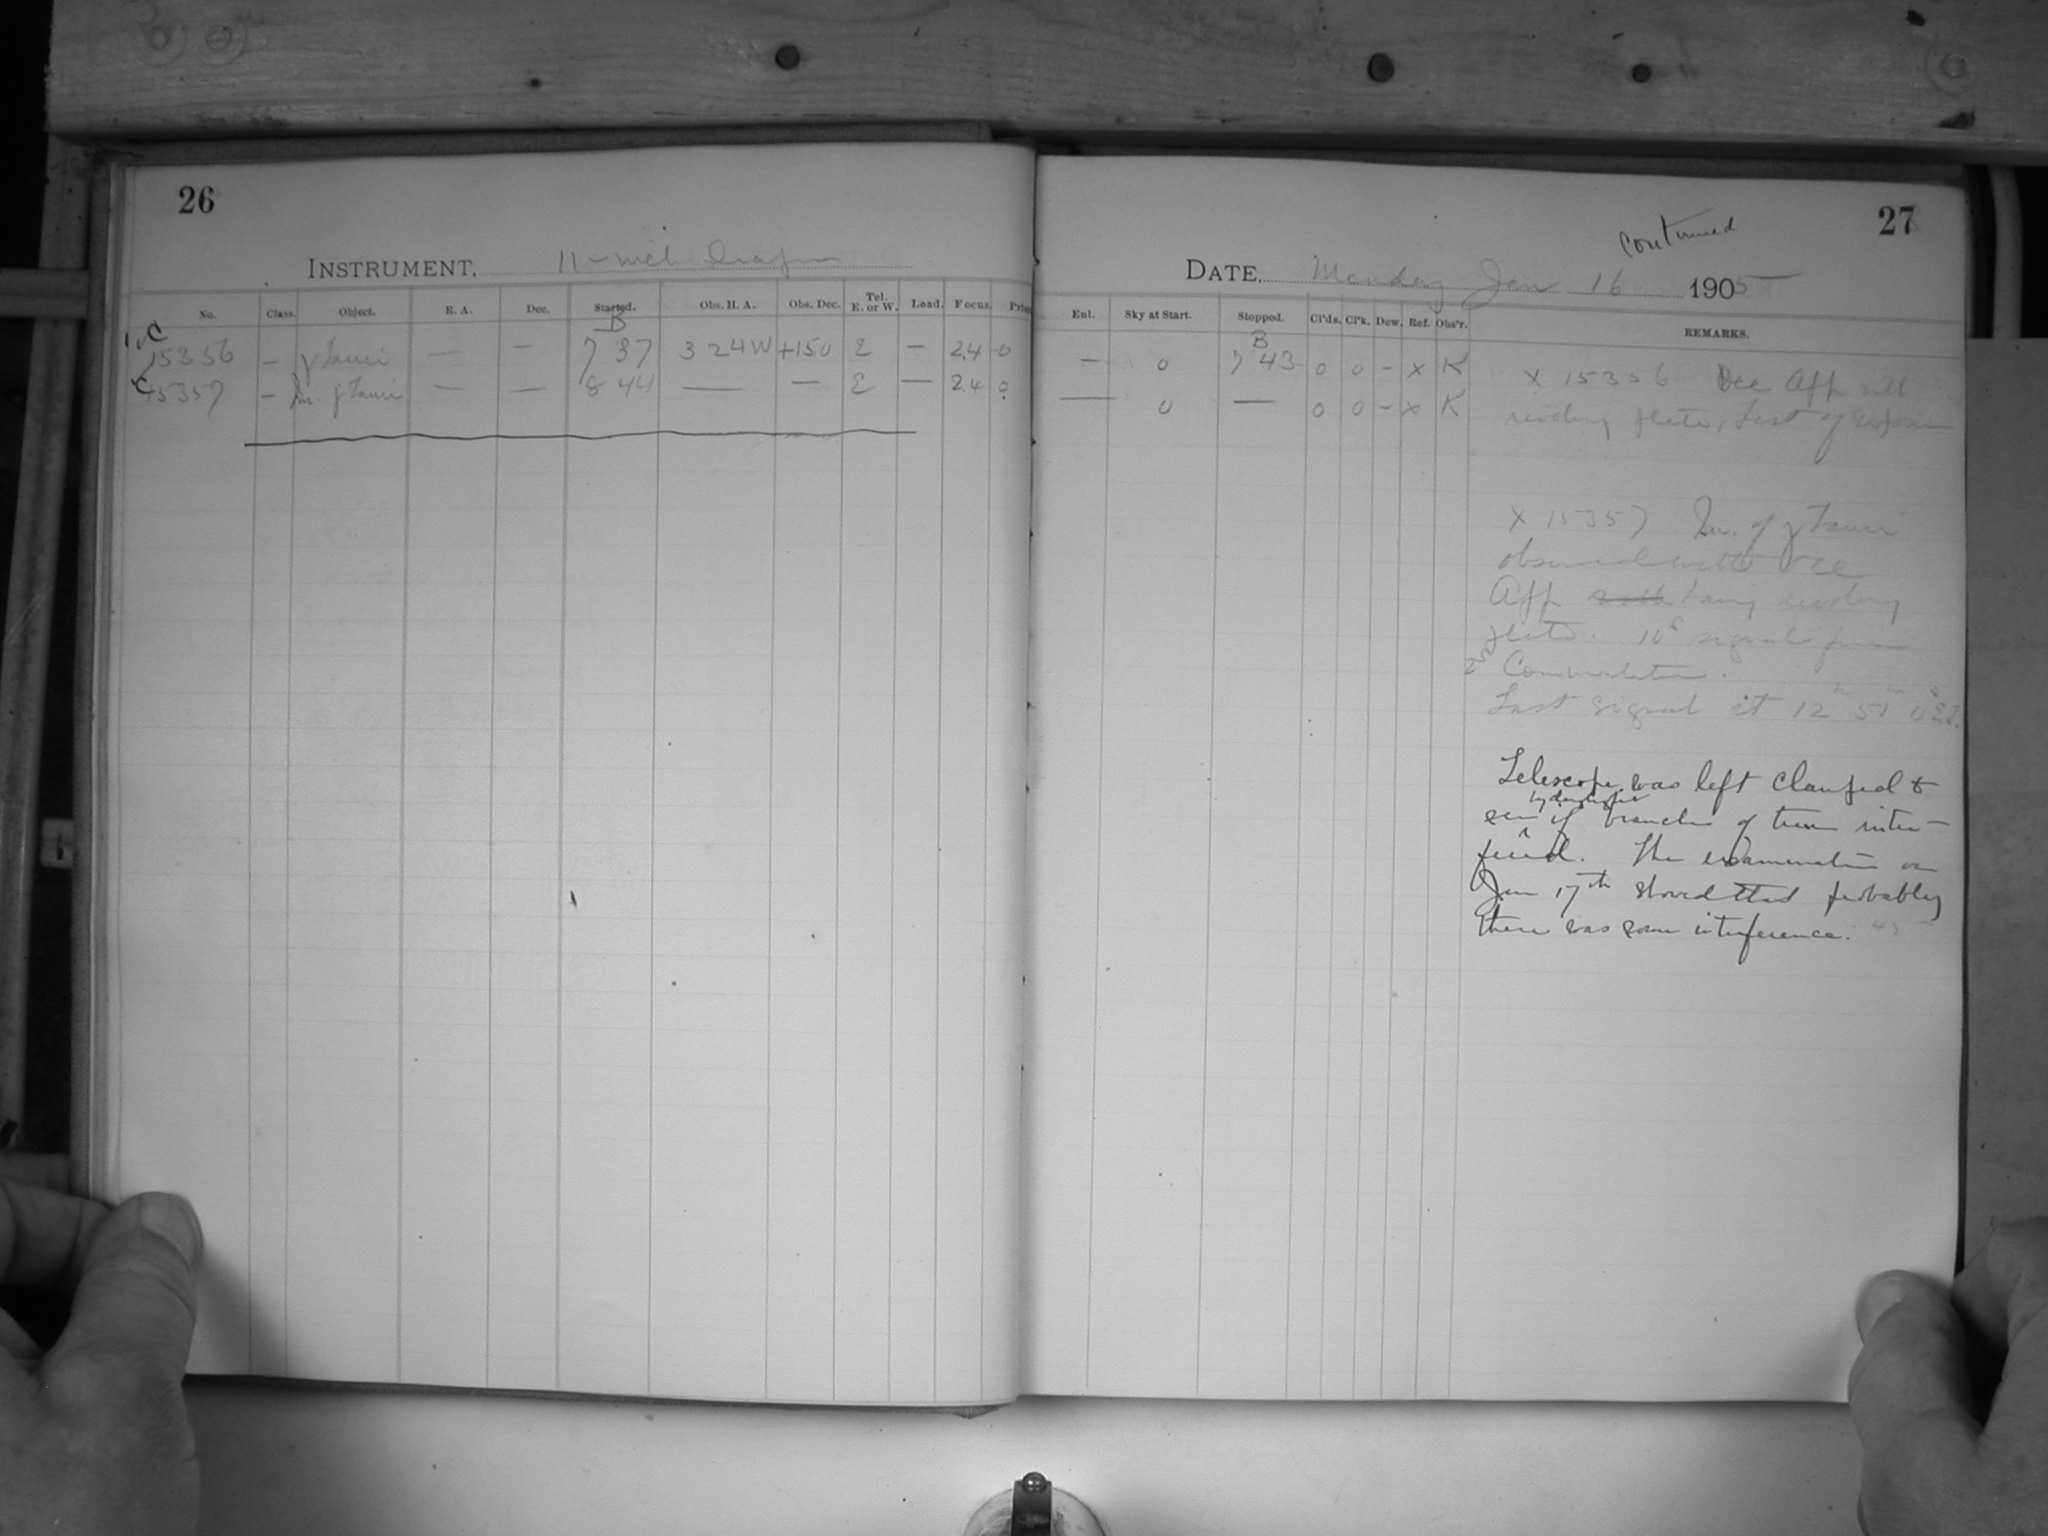 26
INSTRUMENT, 11-inch Draper
No. Class. Object. R. A. Dec. Started. Obs. H. A. Obs. Dec. Tel. E. or W. Lead. Focus.
B
C 15356 — γ Tauri — — 7 37 3 24 W +15 0 E — 2.4 0
C 15357 — γ Tauri — — 8 44 — — E — 2.4 0
27
continued
DATE, Monday Jan 16 1905
Eul. Sky at Start. Stopped. Cl'ds. Cl'k. Dew. Ref. Obs'r. REMARKS.
B
— 0 7 43 0 0 - x K
— 0 — 0 0 - x K
X 15356 Occ App with
revolving plate, Test of Exposure
X 15357 of γ Tauri
observed with Occ
App with using revolving
plate. 10s signals from
Commutator.
Last signal at 12h 51m 0s
Telescope was left clamped to
see if by daylight branches of trees inter-
fered. The examination on
Jan 17th showed that probably
there was some interference.